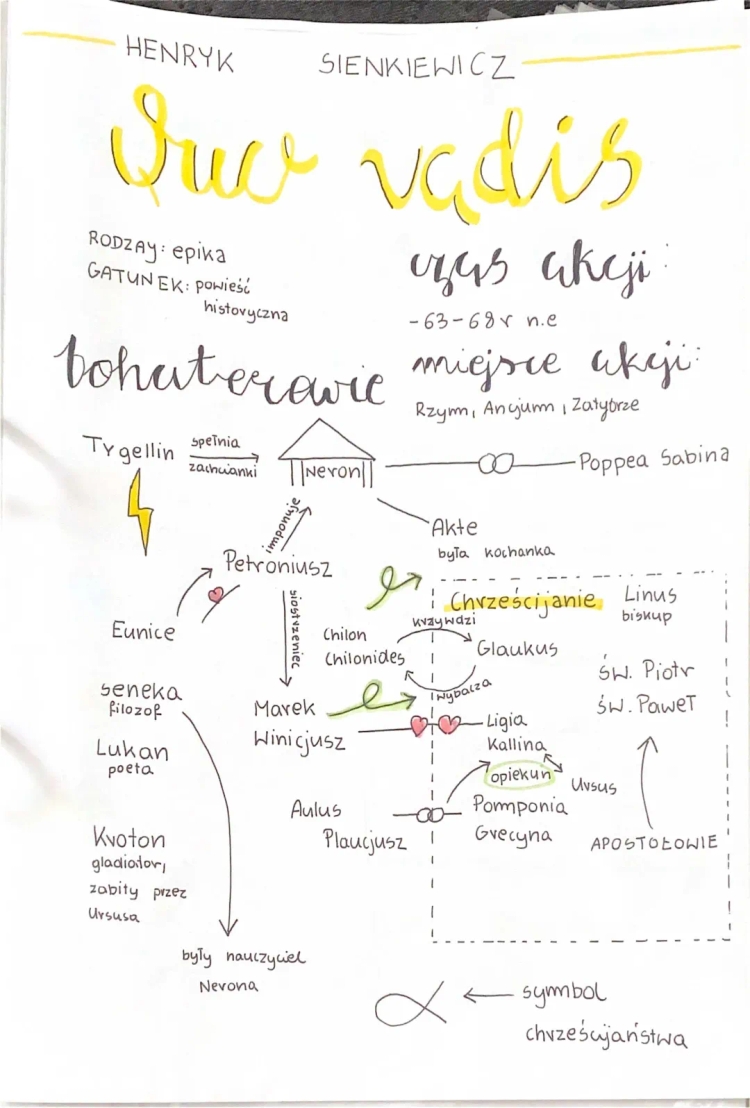 HENRYK SIENKIEWICZ
Quo vadis
RODZAJ: epika
GATUNEK: powieść
historyczna
czas akcji:
-63-68r n.e
bohaterowie
miejsce akcji:
Rzym, Ancjum, Zatybrze
Tygellin
spełnia
zachcianki
Neron
Poppea Sabina
imponuje
Akte
była kochanka
Petroniusz
siostrzeniec
Eunice
Chrześcijanie
Linus
biskup
krzywdzi
Chilon
Chilonides
Glaukus
wybacza
św. Piotr
św. Paweł
seneka
filozof
Marek
Winicjusz
Ligia
Kallina
Lukan
poeta
opiekun
Ursus
Aulus
Plaucjusz
Pomponia
Grecyna
APOSTOŁOWIE
Kroton
gladiator,
zabity przez
Ursusa
były nauczyciel
Nerona
symbol
chrześcijaństwa